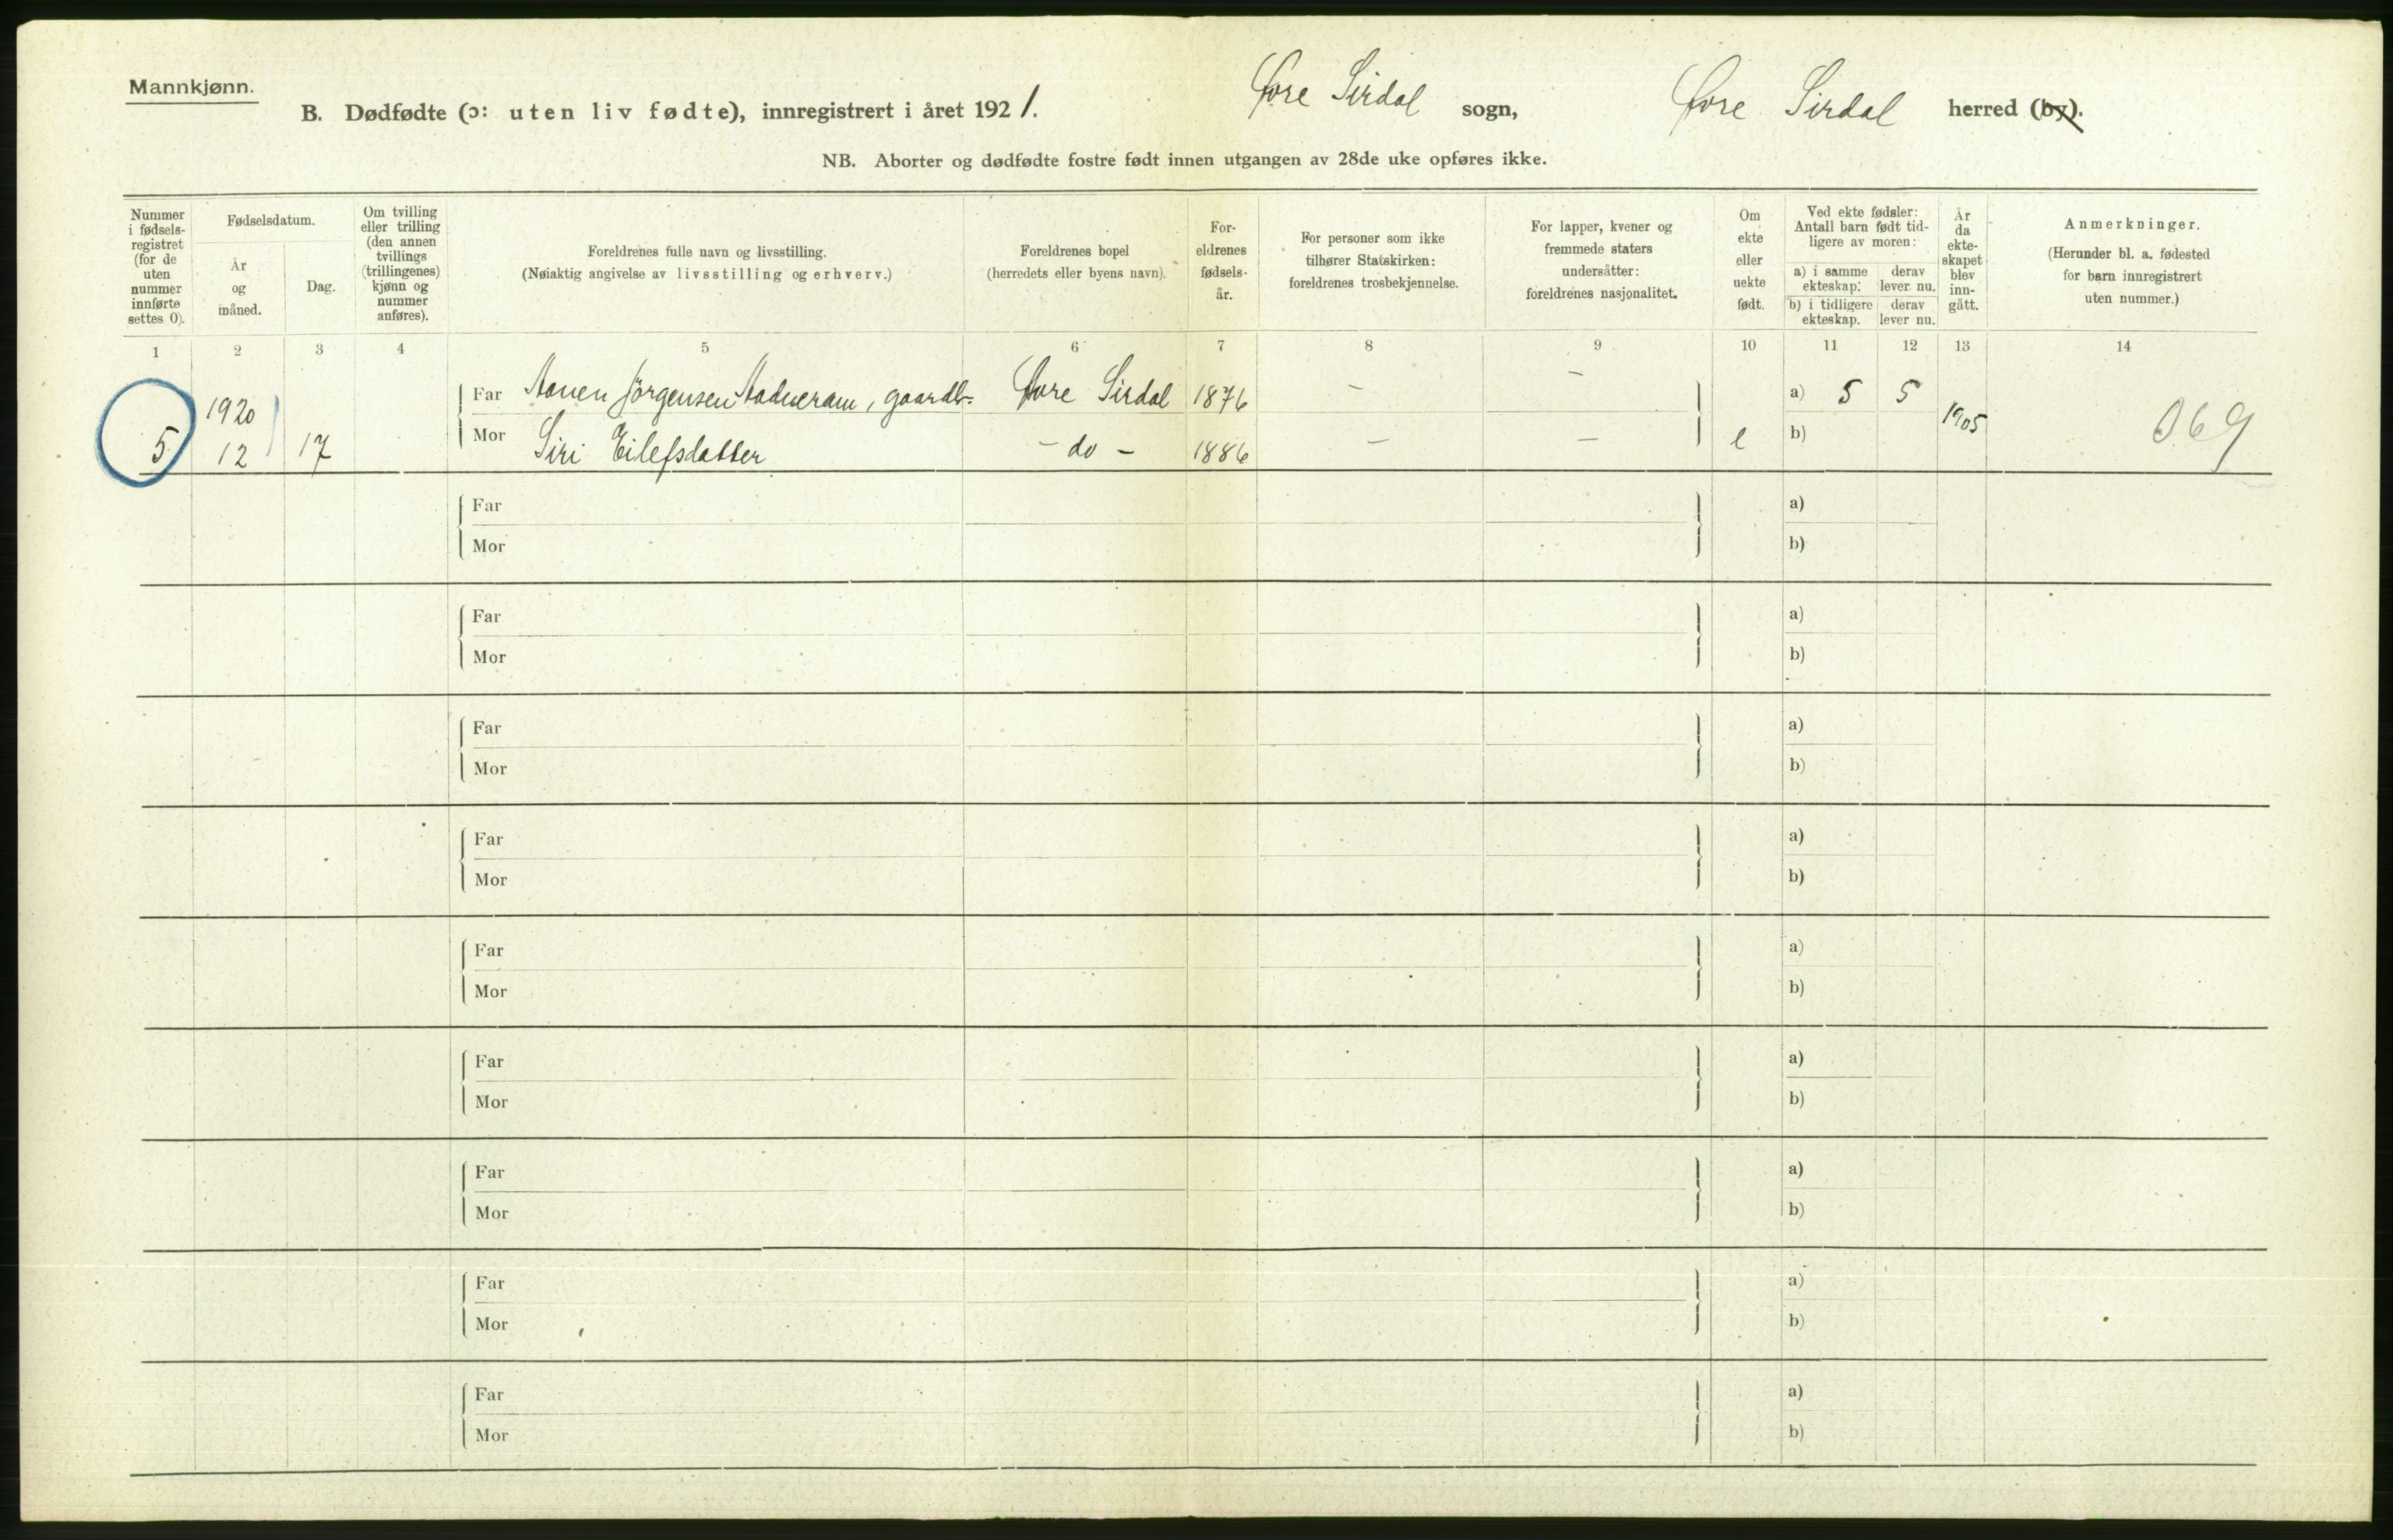 Mannkjønn.
B. Dødfødte (ɔ: uten liv fødte), innregistrert i året 1921. Øvre Sirdal sogn, Øvre Sirdal herred (by).
NB. Aborter og dødfødte fostre født innen utgangen av 28de uke opføres ikke.
Nummer
i fødsels-
registret
(for de
uten
nummer
innførte
settes 0).
Fødselsdatum.
År
og
måned.
Dag.
Om tvilling
eller trilling
(den annen
tvillings
(trillingenes)
kjønn og
nummer
anføres).
Foreldrenes fulle navn og livsstilling.
(Nøiaktig angivelse av livsstilling og erhverv.)
Foreldrenes bopel
(herredets eller byens navn).
For-
eldrenes
fødsels-
år.
For personer som ikke
tilhører Statskirken:
foreldrenes trosbekjennelse.
For lapper, kvener og
fremmede staters
undersåtter:
foreldrenes nasjonalitet.
Om
ekte
eller
uekte
født.
Ved ekte fødsler:
Antall barn født tid-
ligere av moren:
a) i samme
ekteskap.
derav
lever nu.
b) i tidligere
ekteskap.
derav
lever nu.
År
da
ekte-
skapet
blev
inn-
gått.
Anmerkninger.
(Herunder bl. a. fødested
for barn innregistrert
uten nummer.)
1 2 3 4 5 6 7 8 9 10 11 12 13 14
1920
Far Aanen Jörgensen, gaardbr. Øvre Sirdal 1876 – – a) 5 5 1905
5 12 17 Mor Siri Eilefsdatter – do – 1886 – – e b) 069
Far a)
Mor b)
Far a)
Mor b)
Far a)
Mor b)
Far a)
Mor b)
Far a)
Mor b)
Far a)
Mor b)
Far a)
Mor b)
Far a)
Mor b)
Far a)
Mor b)